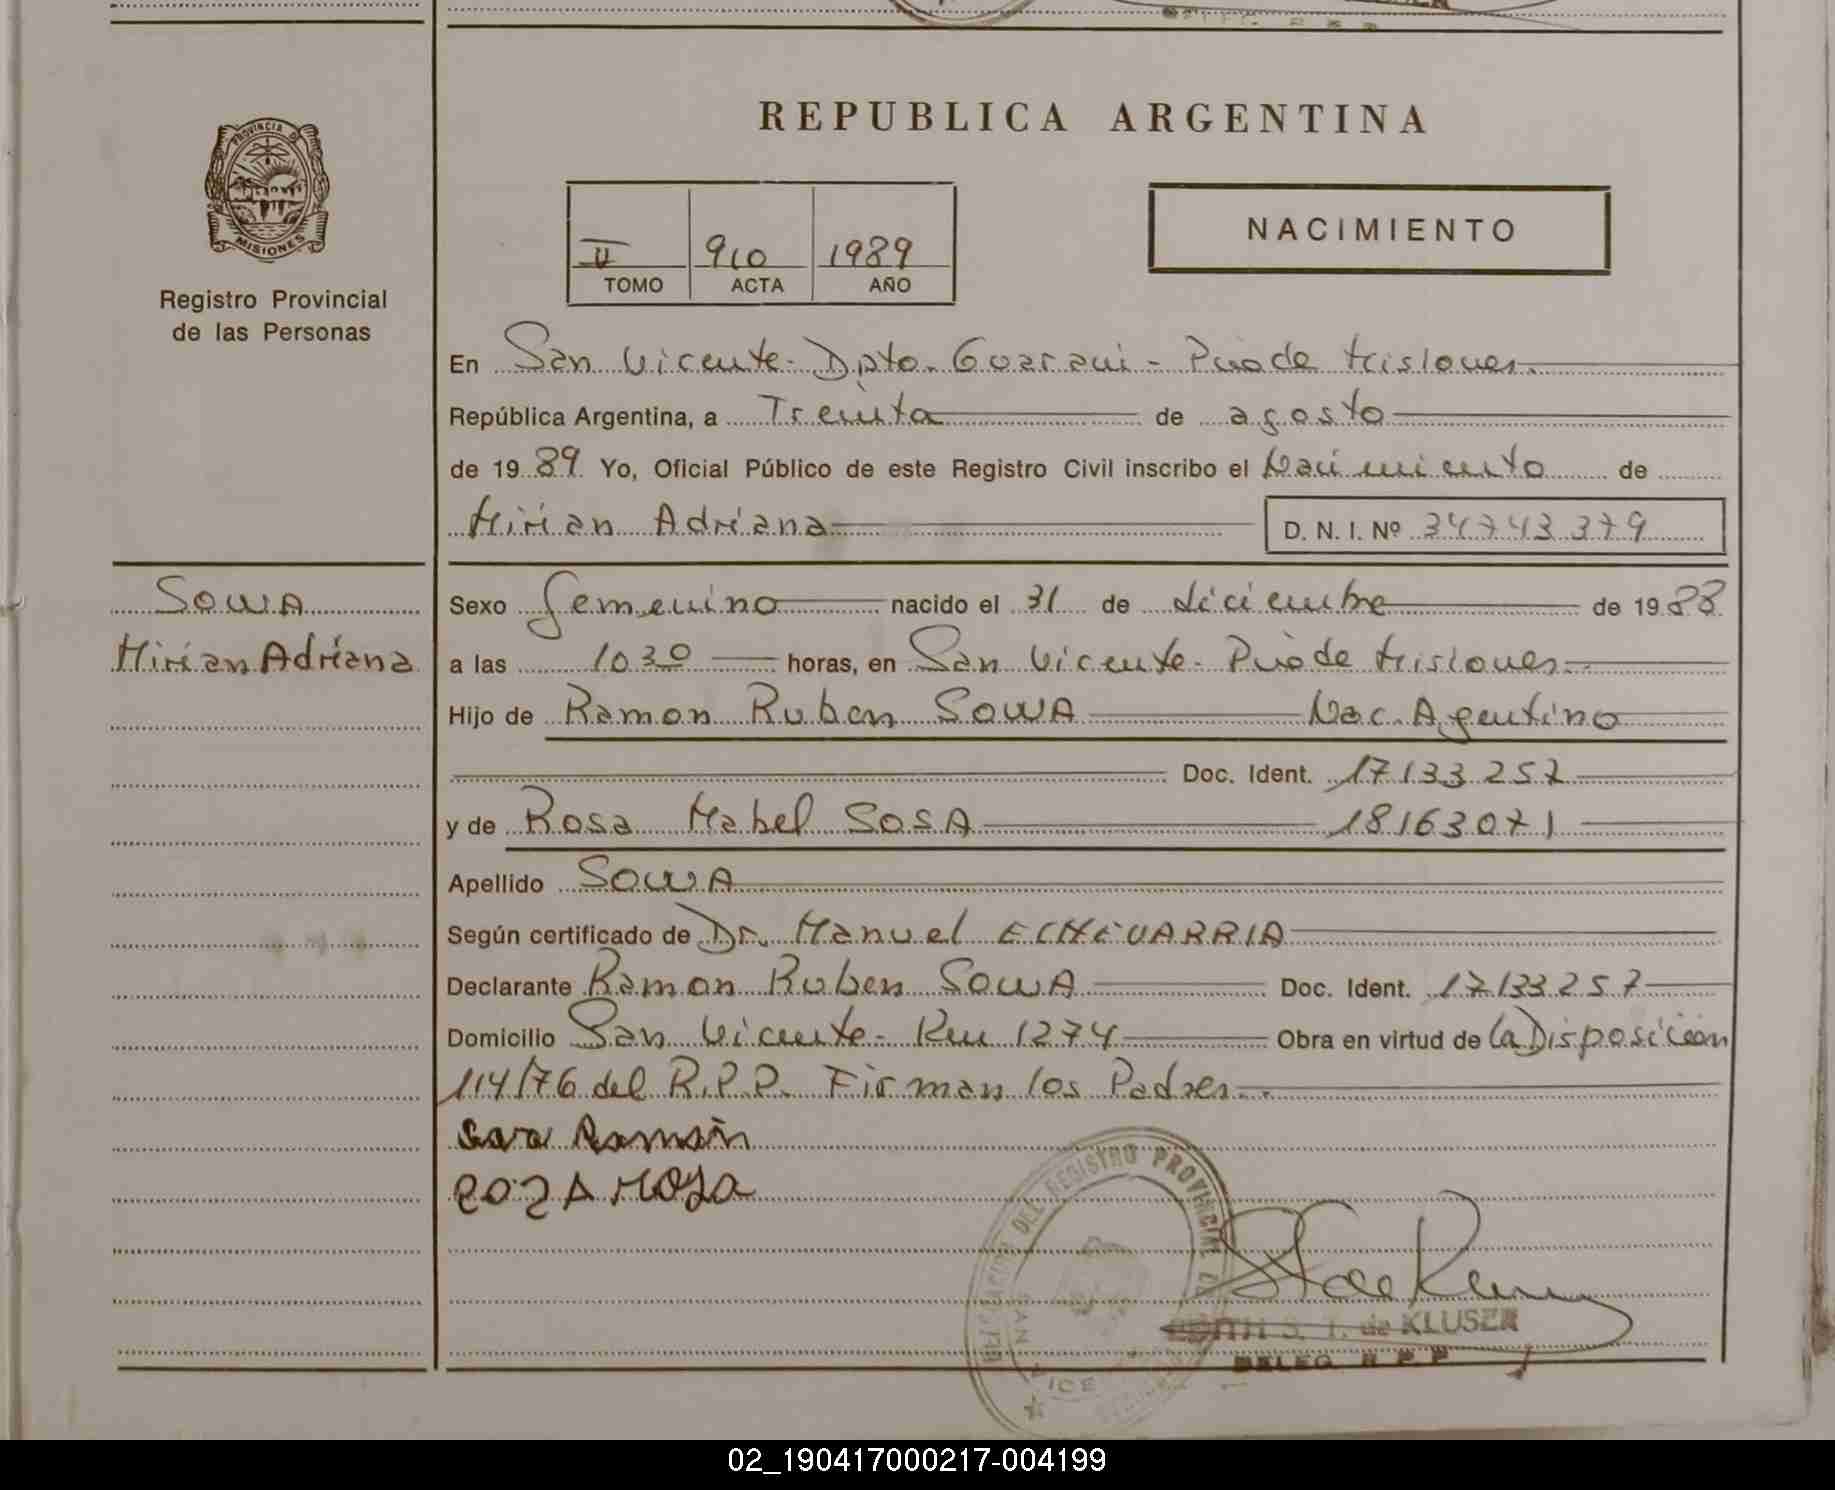 REPUBLICA ARGENTINA
PROVINCIA DE
MISIONES
Registro Provincial
de las Personas
II 910 1989
TOMO ACTA AÑO
NACIMIENTO
En San Vicente - Dpto. Guarani - Pciade Misiones.
República Argentina, a Treinta de agosto
de 1989 Yo, Oficial Público de este Registro Civil inscribo el Nacimiento de
Mirian Adriana D. N. I. Nº 34743379
SOWA
Mirian Adriana
Sexo Femenino nacido el 31 de diciembre de 1988
a las 1030 horas, en San Vicente - Pciade Misiones.
Hijo de Ramon Ruben SOWA Nac. Agentino
Doc. Ident. 17133257
y de Rosa Mabel SOSA 18163071
Apellido SOWA
Según certificado de Dr. Manuel ECHEVARRIA
Declarante Ramon Ruben SOWA Doc. Ident. 17133257
Domicilio San Vicente - Km 1274 Obra en virtud de la Disposición
114/76 del R.P.P. Firman los Padres.
Ramón
DEL REGISTRO PROVINCIAL
SAN VICE
S. T. de KLUSER
DELEG. R P P
02_190417000217-004199